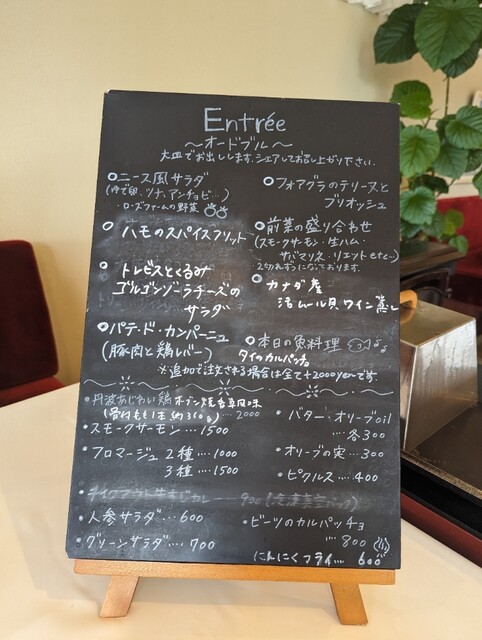 Entrée
～オードブル～
大皿でお出しします。シェアしてお召し上がり下さい。
ニース風サラダ
(ゆで卵、ツナ、アンチョビ…)
・ローズファームの野菜
ハモのスパイスフリット
トレビスとくるみ
ゴルゴンゾーラチーズの
サラダ
パテ・ド・カンパーニュ
(豚肉と鶏レバー)
フォアグラのテリーヌと
ブリオッシュ
前菜の盛り合わせ
(スモークサーモン・生ハム・
サバマリネ・リエット etc～)
2切れずつになっております。
カナダ産
活ムール貝ワイン蒸し
本日の魚料理
タイのカルパッチョ
※追加で注文される場合は全て+2000yenです。
・丹波あじわい鶏オーブン焼香草風味
(骨付もも1本 約350g)… 2000
・スモークサーモン… 1500
・フロマージュ 2種 … 1000
3種 … 1500
・人参サラダ… 600
・グリーンサラダ… 700
・バター・オリーブoil
… 各300
・オリーブの実 … 300
・ピクルス… 400
・ビーツのカルパッチョ
… 800
にんにくフライ… 600